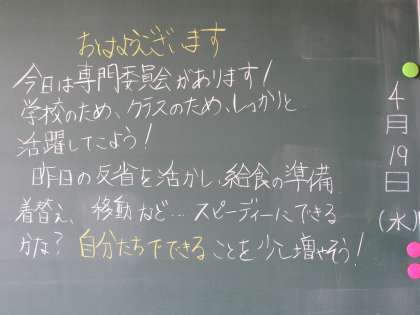 おはようございます
今日は専門委員会があります!
学校のため、クラスのため、しっかりと
活躍してこよう!
昨日の反省を活かし、給食の準備
着替え、移動など…スピーディーにできる
かな?自分たちでできることを少し増やそう!
4月19日(水)